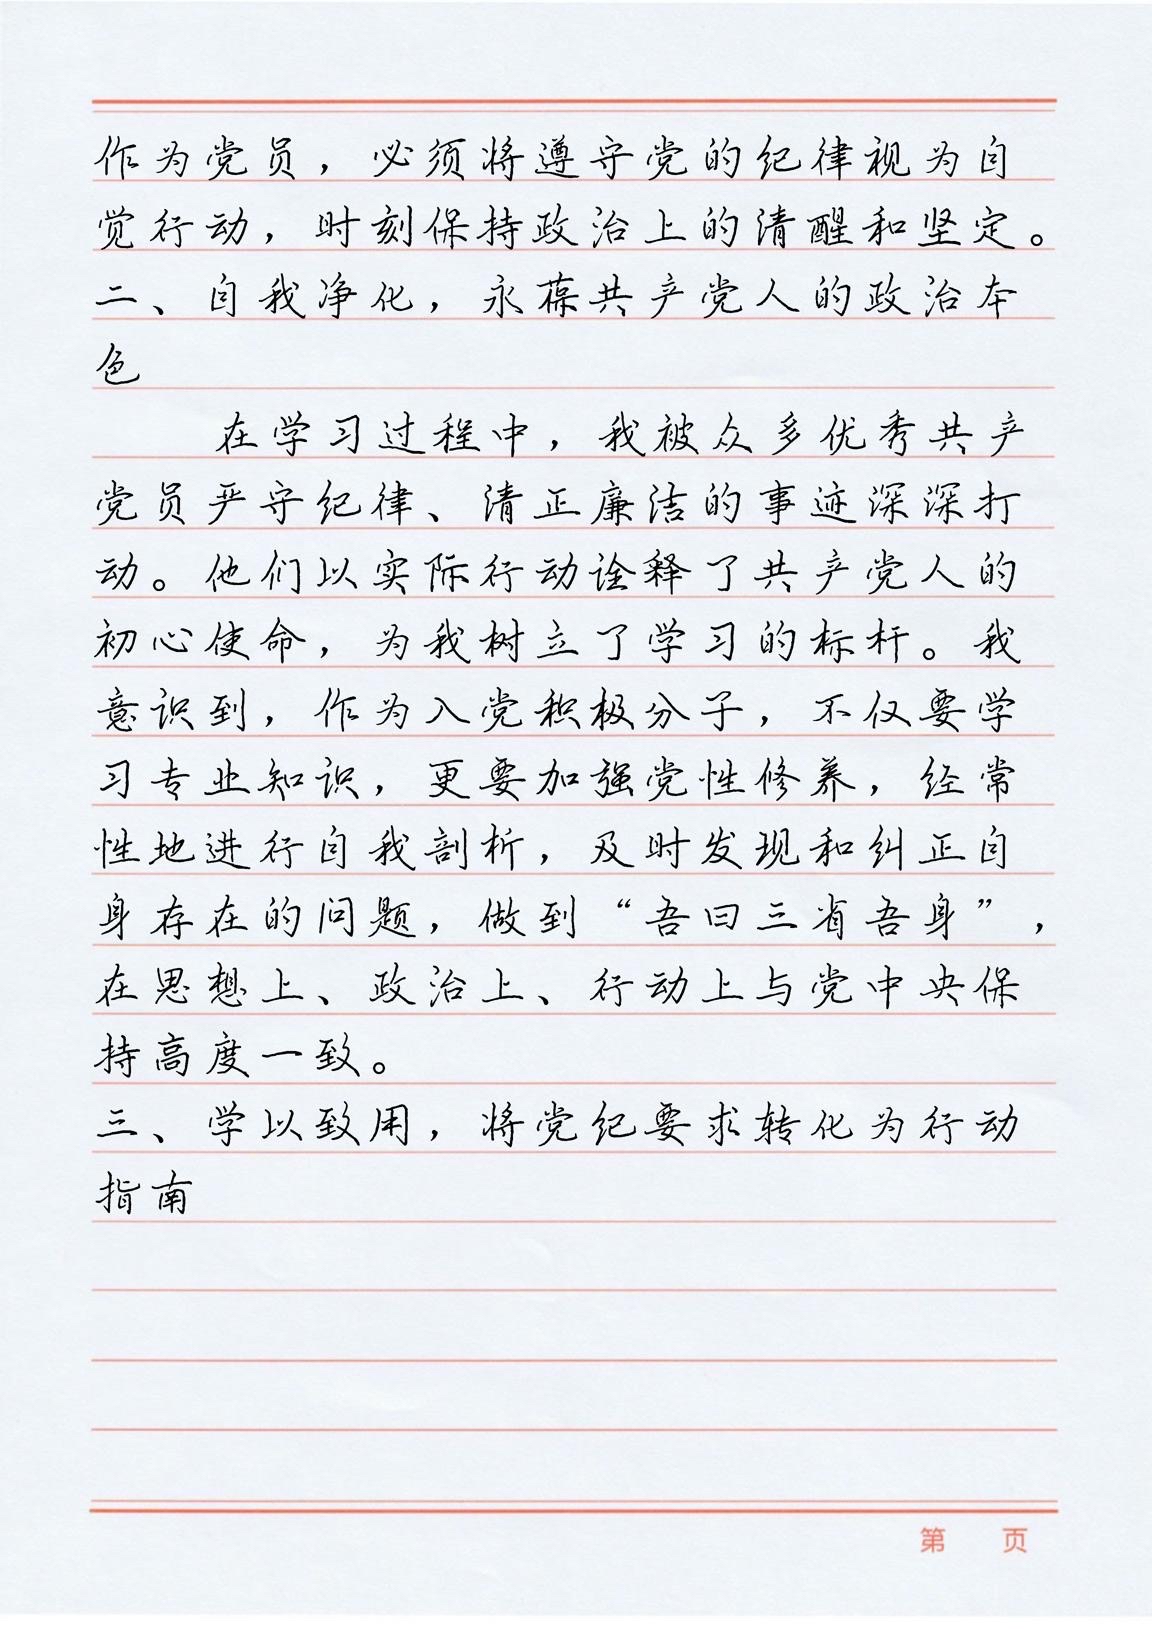 作为党员，必须将遵守党的纪律视为自
觉行动，时刻保持政治上的清醒和坚定。
二、自我净化，永葆共产党人的政治本
色
在学习过程中，我被众多优秀共产
党员严守纪律、清正廉洁的事迹深深打
动。他们以实际行动诠释了共产党人的
初心使命，为我树立了学习的标杆。我
意识到，作为入党积极分子，不仅要学
习专业知识，更要加强党性修养，经常
性地进行自我剖析，及时发现和纠正自
身存在的问题，做到“吾曰三省吾身”，
在思想上、政治上、行动上与党中央保
持高度一致。
三、学以致用，将党纪要求转化为行动
指南
第 页